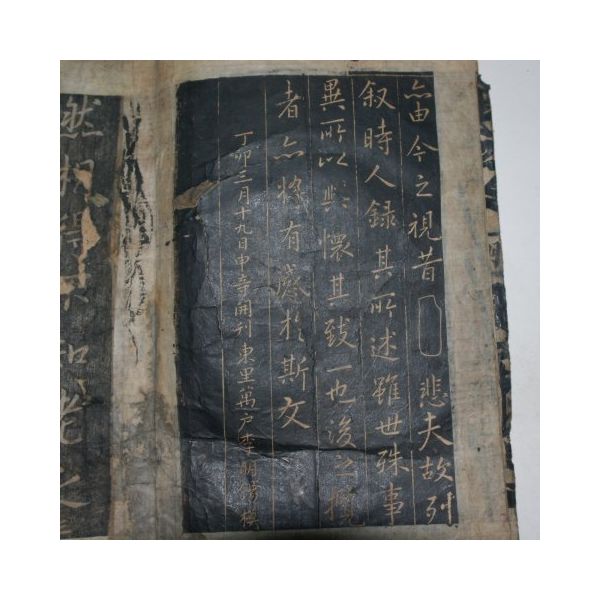 亦由今之視昔悲夫故列
叙時人錄其所述雖世殊事
異所以興懷其致一也後之攬
者亦將有感於斯文
丁卯三月十九日申寺開刊東里萬戶李明脩模
然知老之